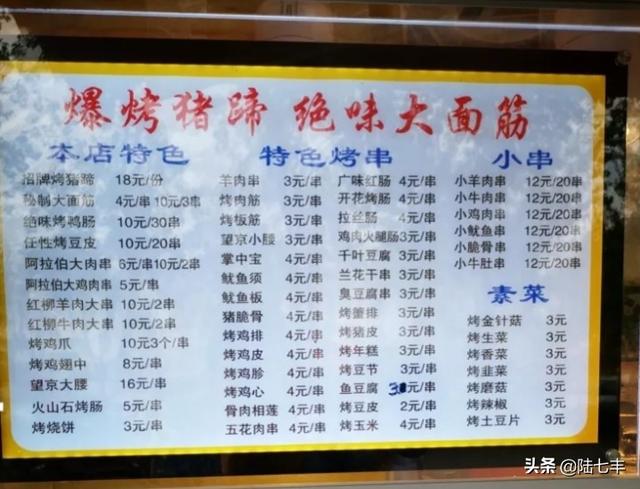 爆烤猪蹄 绝味大面筋
本店特色
招牌烤猪蹄 18元/份
秘制大面筋 4元/串 10元/3串
绝味烤鸭肠 10元/30串
任性烤豆皮 10元/20串
阿拉伯大肉串 6元/串10元/2串
阿拉伯大鸡肉串 5元/串
红柳羊肉大串 10元/2串
红柳牛肉大串 10元/2串
烤鸡爪 10元3个/串
烤鸡翅中 8元/串
望京大腰 16元/串
火山石烤肠 5元/串
烤烧饼 3元/串
特色烤串
羊肉串 3元/串
烤肉筋 3元/串
烤板筋 3元/串
望京小腰 3元/串
掌中宝 4元/串
鱿鱼须 4元/串
鱿鱼板 4元/串
猪脆骨 4元/串
烤鸡排 4元/串
烤鸡皮 4元/串
烤鸡胗 4元/串
烤鸡心 4元/串
骨肉相莲 4元/串
五花肉串 4元/串
广味红肠 4元/串
开花烤肠 4元/串
拉丝肠 4元/串
鸡肉火腿肠3元/串
千叶豆腐 3元/串
兰花干串 3元/串
臭豆腐串 3元/串
烤蟹排 3元/串
烤猪皮 3元/串
烤年糕 3元/串
烤豆节 3元/串
鱼豆腐 元/串
烤豆皮 2元/串
烤玉米 4元/串
小串
小羊肉串 12元/20串
小牛肉串 12元/20串
小鸡肉串 12元/20串
小鱿鱼串 12元/20串
小脆骨串 12元/20串
小牛肚串 12元/20串
素菜
烤金针菇 3元
烤生菜 3元
烤香菜 3元
烤韭菜 3元
烤蘑菇 3元
烤辣椒 3元
烤土豆片 3元
头条 @陆七丰